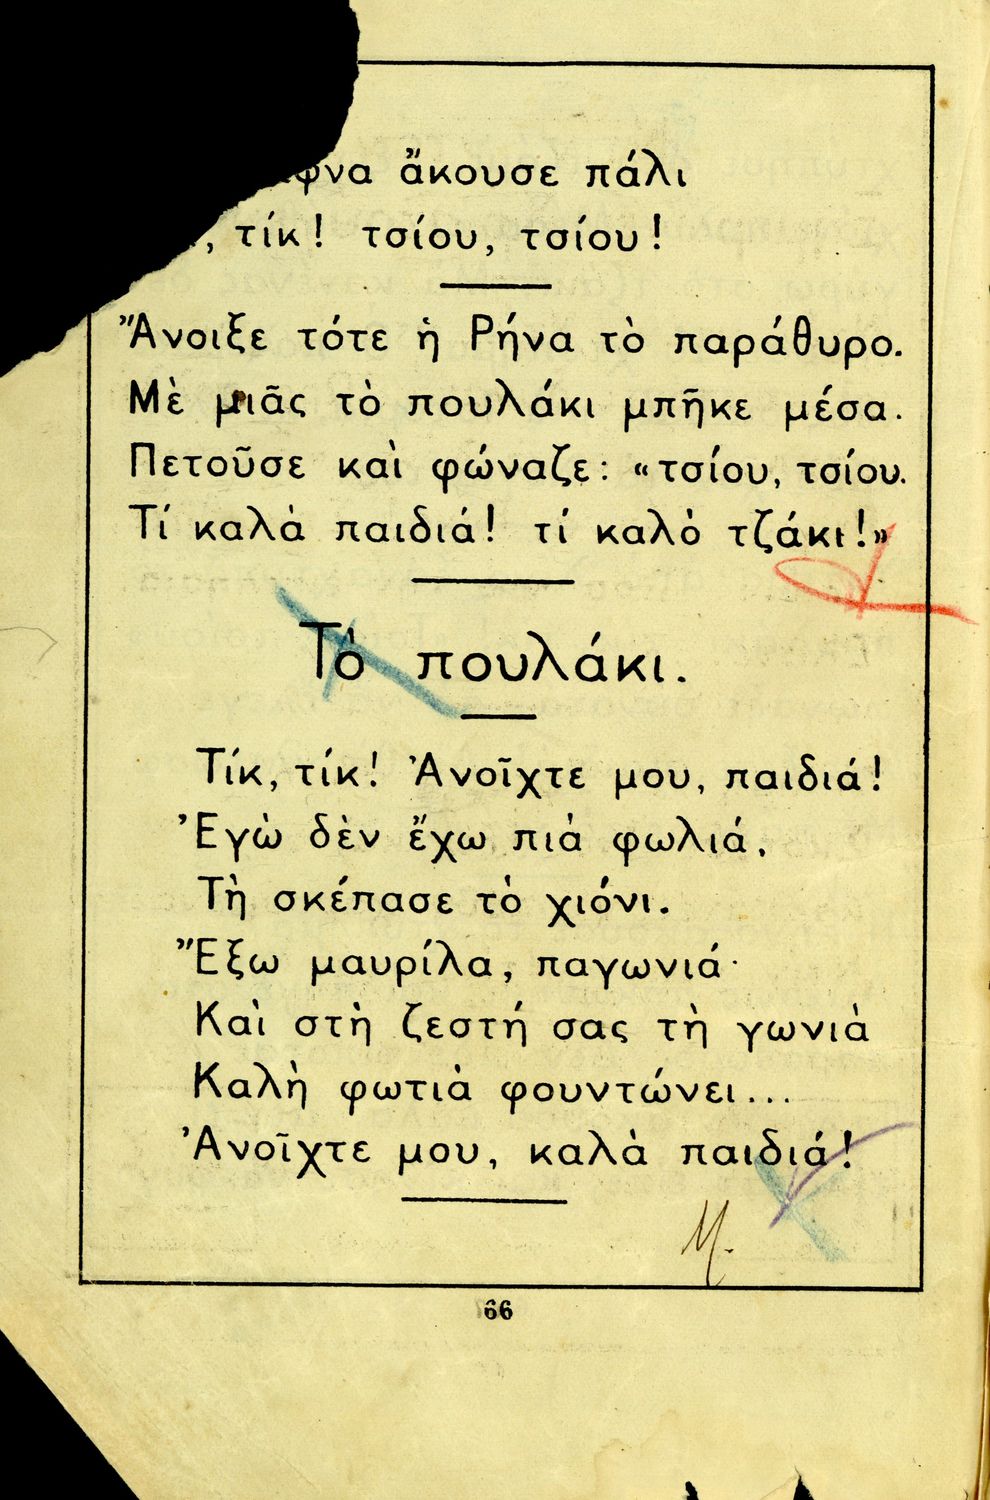 ἄκουσε πάλι
, τίκ! τσίου, τσίου!
Ἄνοιξε τότε ἡ Ρήνα τὸ παράθυρο.
Μὲ μιᾶς τὸ πουλάκι μπῆκε μέσα.
Πετοῦσε καὶ φώναζε: «τσίου, τσίου.
Τί καλὰ παιδιά! τί καλὸ τζάκι!»
Τὸ πουλάκι.
Τίκ, τίκ! Ἀνοῖχτε μου, παιδιά!
Ἐγὼ δὲν ἔχω πιὰ φωλιά,
Τὴ σκέπασε τὸ χιόνι.
Ἔξω μαυρίλα, παγωνιά·
Καὶ στὴ ζεστή σας τὴ γωνιὰ
Καλὴ φωτιὰ φουντώνει...
Ἀνοῖχτε μου, καλὰ παιδιά!
Μ.
66